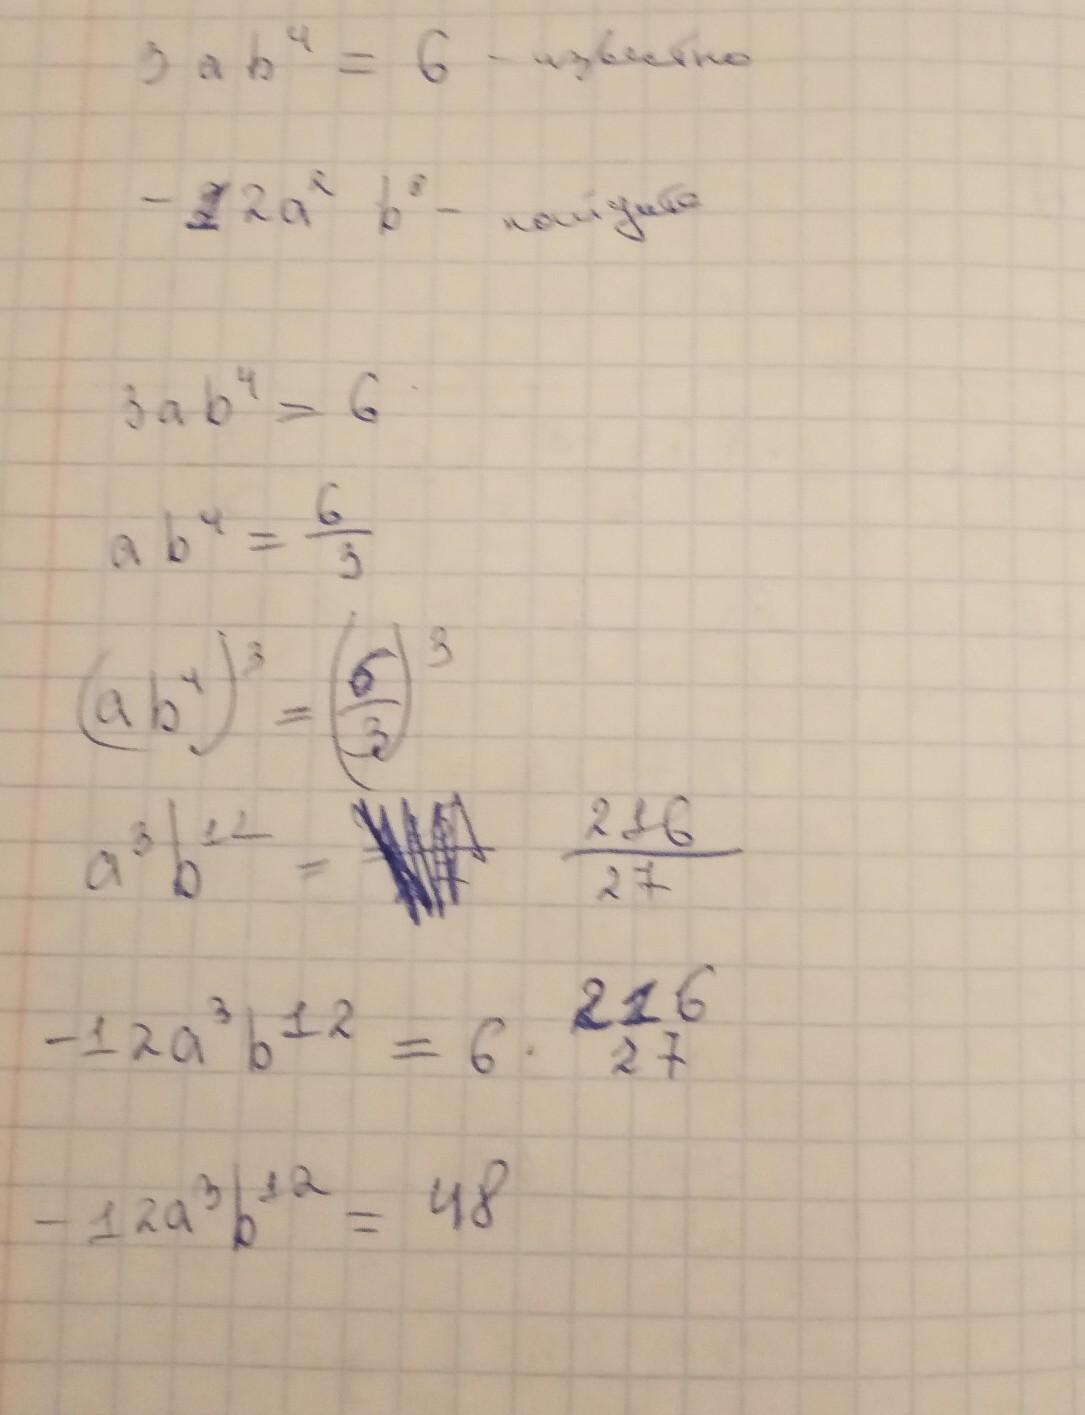 3ab⁴ = 6 - известно
-12a² b⁸ - найдите
3ab⁴ = 6
ab⁴ = 6/3
(ab⁴)³ = (6/3)³
a³b¹² = 216/27
-12a³b¹² = 6 · 216/27
-12a³b¹² = 48